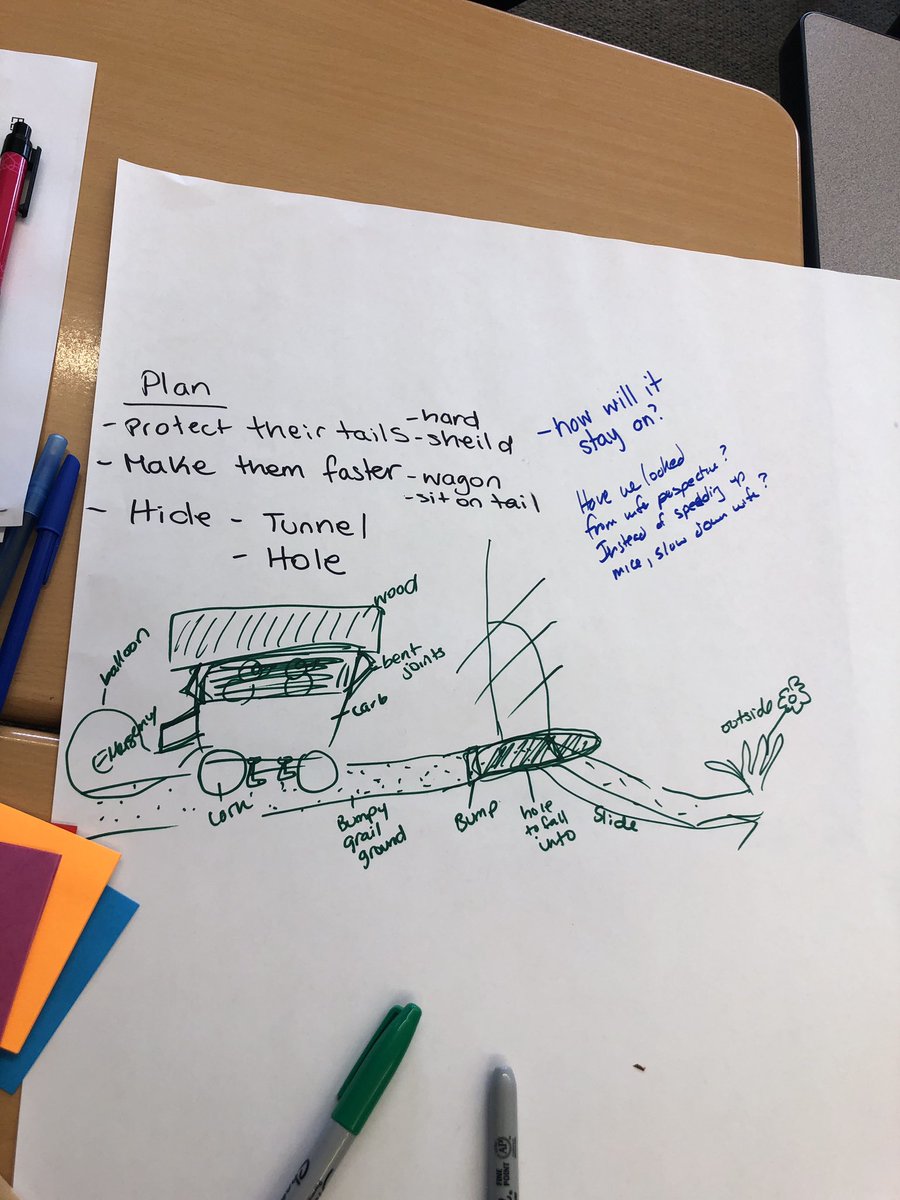 Plan
- Protect their tails - hard
- sheild
- Make them faster - wagon
- sit on tail
- Hide - Tunnel
- Hole
- how will it
stay on?
Have we looked
from wife perspective?
Instead of speeding up
mice, slow down wife?
wood
balloon
bent
joints
carb
cork
Bumpy
grail
ground
Bump
hole
to fall
into
Slide
outside
FINE
POINT
AP